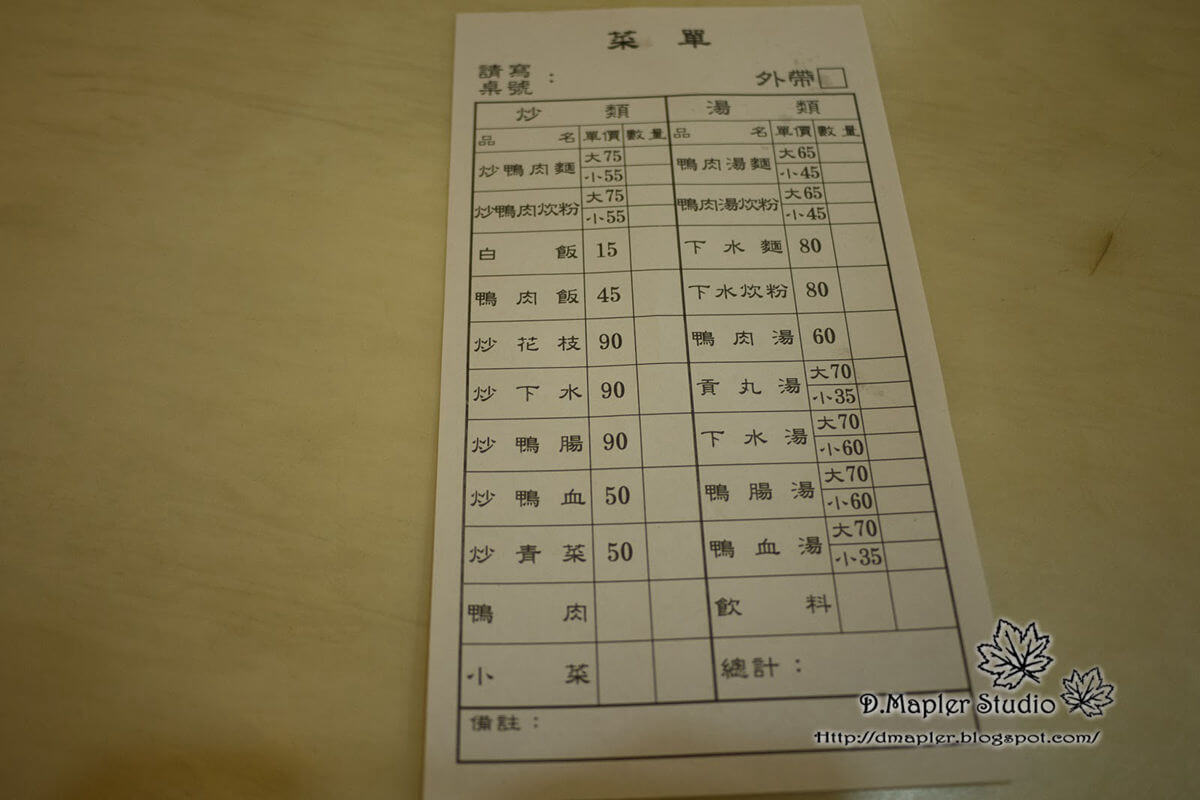 菜 單
請寫桌號： 外帶□
炒 類 湯 類
品 名 單價 數量 品 名 單價 數量
炒鴨肉麵 大75 小55 鴨肉湯麵 大65 小45
炒鴨肉炊粉 大75 小55 鴨肉湯炊粉 大65 小45
白 飯 15 下水麵 80
鴨肉飯 45 下水炊粉 80
炒花枝 90 鴨肉湯 60
炒下水 90 貢丸湯 大70 小35
炒鴨腸 90 下水湯 大70 小60
炒鴨血 50 鴨腸湯 大70 小60
炒青菜 50 鴨血湯 大70 小35
鴨 肉 飲 料
小 菜 總計：
備註：
D.Mapler Studio
Http://dmapler.blogspot.com/